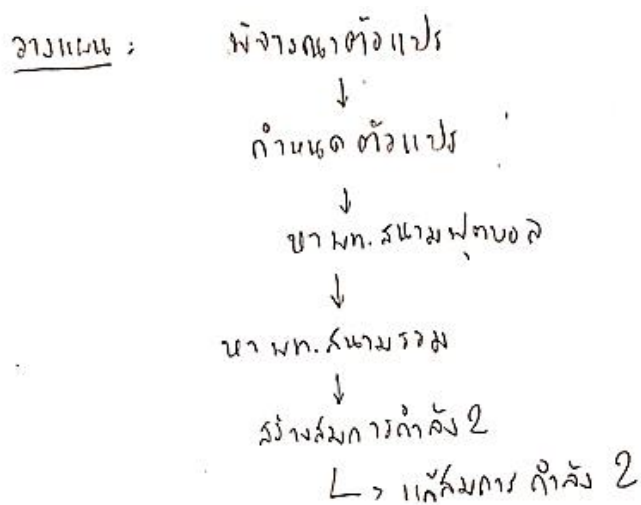 วางแผน : พิจารณาตัวแปร
↓
กำหนดตัวแปร
↓
หา พท. สนามฟุตบอล
↓
หา พท. สนามรวม
↓
สร้างสมการกำลัง 2
↳ แก้สมการ กำลัง 2